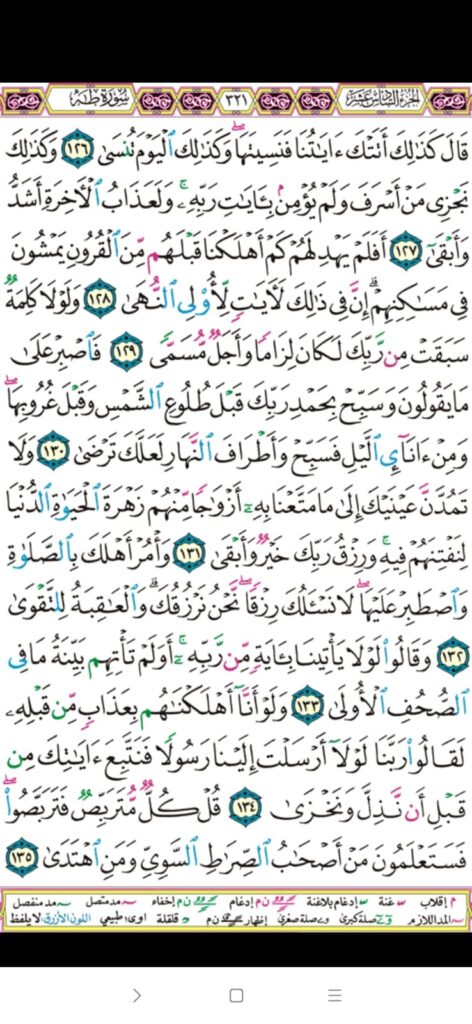 الجزء السادس عشر ٣٢١ سورة طه
قَالَ كَذَٰلِكَ أَتَتْكَ ءَايَٰتُنَا فَنَسِيتَهَا ۖ وَكَذَٰلِكَ ٱلْيَوْمَ تُنسَىٰ ١٢٦ وَكَذَٰلِكَ
نَجْزِى مَنْ أَسْرَفَ وَلَمْ يُؤْمِنۢ بِـَٔايَٰتِ رَبِّهِۦ ۚ وَلَعَذَابُ ٱلْأَخِرَةِ أَشَدُّ
وَأَبْقَىٰٓ ١٢٧ أَفَلَمْ يَهْدِ لَهُمْ كَمْ أَهْلَكْنَا قَبْلَهُم مِّنَ ٱلْقُرُونِ يَمْشُونَ
فِى مَسَٰكِنِهِمْ ۗ إِنَّ فِى ذَٰلِكَ لَأٓيَٰتٍ لِّأُو۟لِى ٱلنُّهَىٰ ١٢٨ وَلَوْلَا كَلِمَةٌ
سَبَقَتْ مِن رَّبِّكَ لَكَانَ لِزَامًا وَأَجَلٌ مُّسَمًّى ١٢٩ فَٱصْبِرْ عَلَىٰ
مَا يَقُولُونَ وَسَبِّحْ بِحَمْدِ رَبِّكَ قَبْلَ طُلُوعِ ٱلشَّمْسِ وَقَبْلَ غُرُوبِهَا ۖ
وَمِنْ ءَانَآئِ ٱلَّيْلِ فَسَبِّحْ وَأَطْرَافَ ٱلنَّهَارِ لَعَلَّكَ تَرْضَىٰ ١٣٠ وَلَا
تَمُدَّنَّ عَيْنَيْكَ إِلَىٰ مَا مَتَّعْنَا بِهِۦٓ أَزْوَٰجًا مِّنْهُمْ زَهْرَةَ ٱلْحَيَوٰةِ ٱلدُّنْيَا
لِنَفْتِنَهُمْ فِيهِ ۚ وَرِزْقُ رَبِّكَ خَيْرٌ وَأَبْقَىٰ ١٣١ وَأْمُرْ أَهْلَكَ بِٱلصَّلَوٰةِ
وَٱصْطَبِرْ عَلَيْهَا ۖ لَا نَسْـَٔلُكَ رِزْقًا ۖ نَّحْنُ نَرْزُقُكَ ۗ وَٱلْعَٰقِبَةُ لِلتَّقْوَىٰ
١٣٢ وَقَالُوا۟ لَوْلَا يَأْتِينَا بِـَٔايَةٍ مِّن رَّبِّهِۦٓ ۚ أَوَلَمْ تَأْتِهِم بَيِّنَةُ مَا فِى
ٱلصُّحُفِ ٱلْأُولَىٰ ١٣٣ وَلَوْ أَنَّآ أَهْلَكْنَٰهُم بِعَذَابٍ مِّن قَبْلِهِۦ
لَقَالُوا۟ رَبَّنَا لَوْلَآ أَرْسَلْتَ إِلَيْنَا رَسُولًا فَنَتَّبِعَ ءَايَٰتِكَ مِن
قَبْلِ أَن نَّذِلَّ وَنَخْزَىٰ ١٣٤ قُلْ كُلٌّ مُّتَرَبِّصٌ فَتَرَبَّصُوا۟ ۖ
فَسَتَعْلَمُونَ مَنْ أَصْحَٰبُ ٱلصِّرَٰطِ ٱلسَّوِىِّ وَمَنِ ٱهْتَدَىٰ ١٣٥
م إقلاب غنة إدغام بلاغنة ن م إدغام ن م إخفاء مد متصل مد منفصل
المد اللازم صلة كبرى صلة صغرى إظهار ن م قلقلة اوى طبيعي اللون الأزرق لا يلفظ